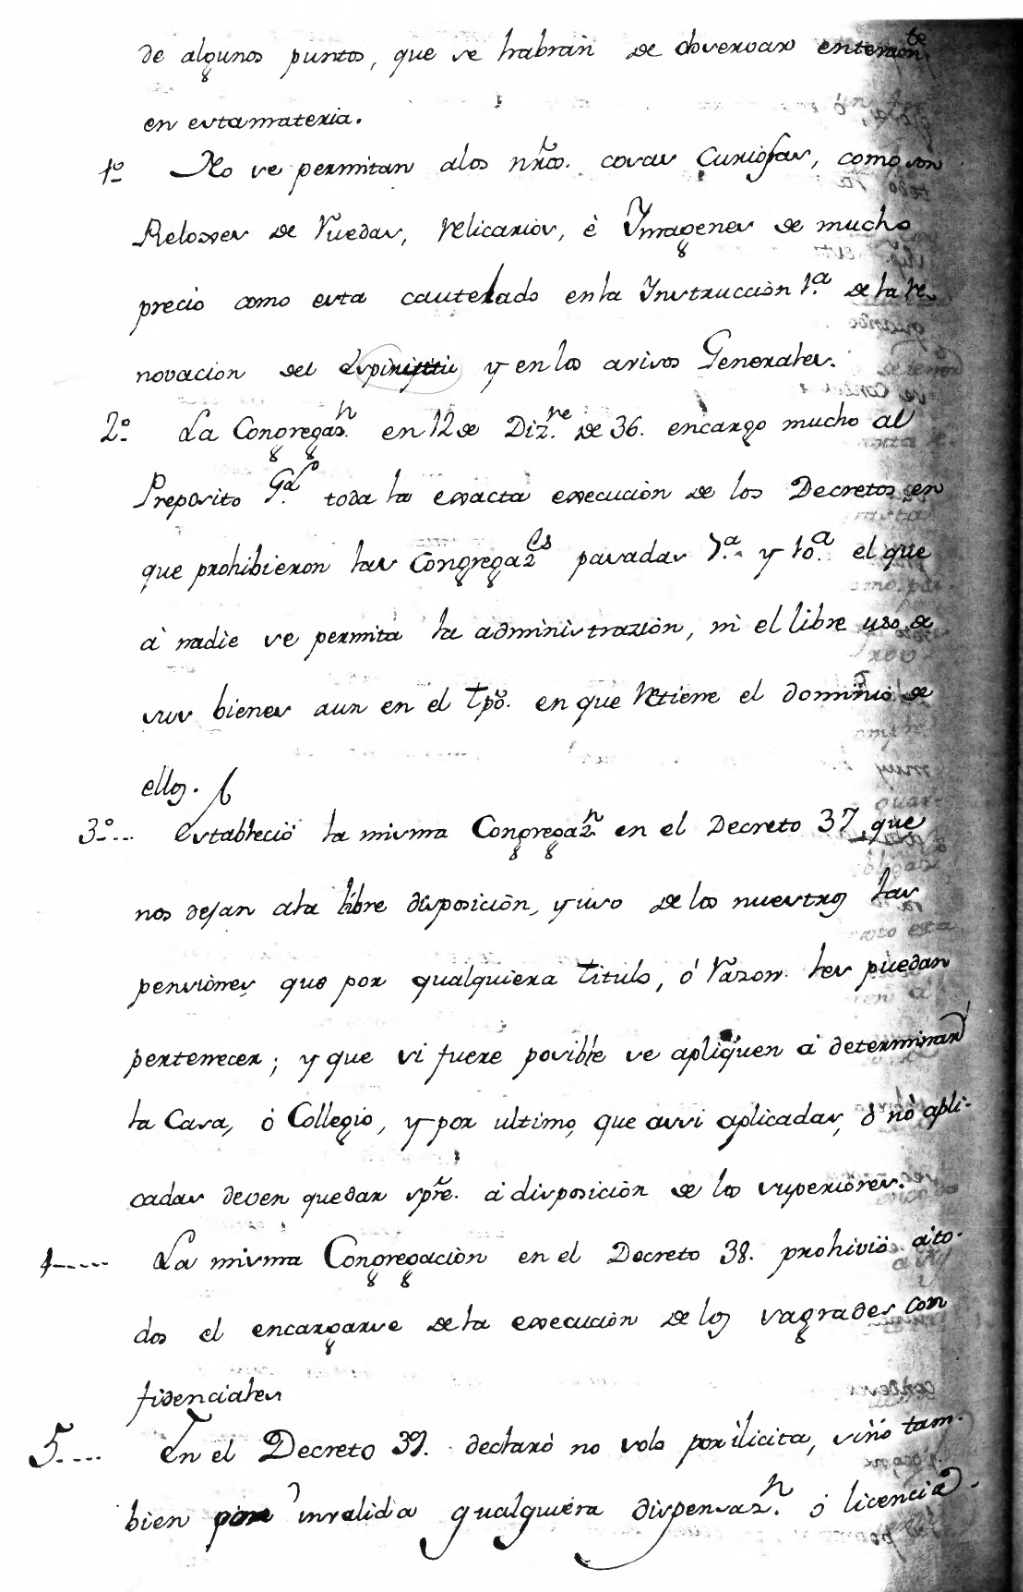 de algunos puntos, que se habràn de observar enteramte.
en estamateria.
1º No se permitan alos nrõs. cosas Curiosas, como son
Reloxes de Ruedas, Relicariòs, è Ymagenes de mucho
precio como esta cautelado enla Ynstrucciòn 1.ª de la Re-
novacion del Espiritu y en los avisos Generales.
2º La Congregazn. en 12 de Dizre. de 36. encargo mucho al
Preposito Gral. toda la exacta execuciòn de los Decretos en
que prohibieron las Congregazes pasadas 7.ª y 10.ª el que
à nadie se permita la administraziòn, ni el libre uso de
sus bienes aun en el tpõ. en que Retiene el dominio de
ellos.
3º... Estableciò la misma Congregazn. en el Decreto 37, que
nos dejan ala libre disposiciòn, y uso de los nuestros las
pensiònes que por qualquiera titulo, ó Razon les puedan
pertenecer; y que si fuere posible se apliquen à determinada
la Casa, ó Collegio, y por ultimo, que assi aplicadas, ó nó apli-
cadas deven quedar spre. à disposiciòn de los superiòres.
4----- La misma Congregaciòn en el Decreto 38. prohiviò ato-
dos el encargarse dela execuciòn de los sagrades con
fidenciales
5.... En el Decreto 39. declarò no solo por ilicita, siño tam-
bien por invalida qualquiera dispensazn. ó licencia.